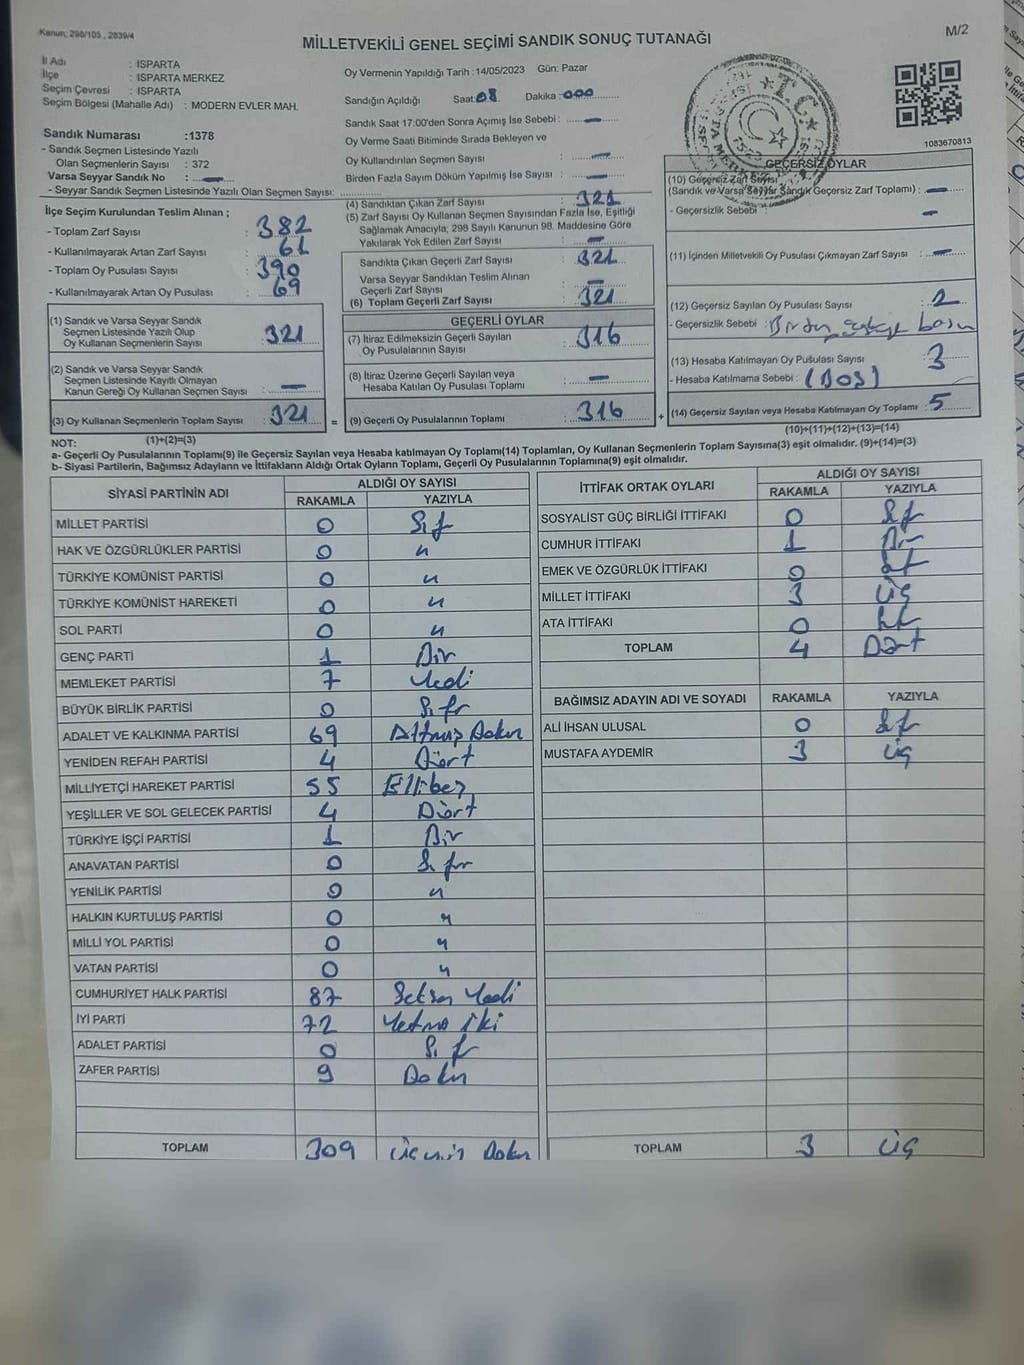 Kanun; 298/105 , 2839/4
M/2
MİLLETVEKİLİ GENEL SEÇİMİ SANDIK SONUÇ TUTANAĞI
İl Adı : ISPARTA
İlçe : ISPARTA MERKEZ
Seçim Çevresi : ISPARTA
Seçim Bölgesi (Mahalle Adı) : MODERN EVLER MAH.
Sandık Numarası :1378
- Sandık Seçmen Listesinde Yazılı
Olan Seçmenlerin Sayısı : 372
Varsa Seyyar Sandık No : —
- Seyyar Sandık Seçmen Listesinde Yazılı Olan Seçmen Sayısı:
Oy Vermenin Yapıldığı Tarih :14/05/2023 Gün: Pazar
Sandığın Açıldığı Saat:08 Dakika:000
Sandık Saat 17:00'den Sonra Açımış İse Sebebi : —
Oy Verme Saati Bitiminde Sırada Bekleyen ve
Oy Kullandırılan Seçmen Sayısı : —
Birden Fazla Sayım Döküm Yapılmış İse Sayısı : —
1083670813
İlçe Seçim Kurulundan Teslim Alınan ;
- Toplam Zarf Sayısı : 382
- Kullanılmayarak Artan Zarf Sayısı : 61
- Toplam Oy Pusulası Sayısı : 390
- Kullanılmayarak Artan Oy Pusulası : 69
(1) Sandık ve Varsa Seyyar Sandık
Seçmen Listesinde Yazılı Olup
Oy Kullanan Seçmenlerin Sayısı : 321
(2) Sandık ve Varsa Seyyar Sandık
Seçmen Listesinde Kayıtlı Olmayan
Kanun Gereği Oy Kullanan Seçmen Sayısı : —
(3) Oy Kullanan Seçmenlerin Toplam Sayısı : 321
(1)+(2)=(3)
(4) Sandıktan Çıkan Zarf Sayısı : 321
(5) Zarf Sayısı Oy Kullanan Seçmen Sayısından Fazla İse, Eşitliği
Sağlamak Amacıyla; 298 Sayılı Kanunun 98. Maddesine Göre
Yakılarak Yok Edilen Zarf Sayısı : —
Sandıkta Çıkan Geçerli Zarf Sayısı : 321
Varsa Seyyar Sandıktan Teslim Alınan
Geçerli Zarf Sayısı : —
(6) Toplam Geçerli Zarf Sayısı : 321
GEÇERLİ OYLAR
(7) İtiraz Edilmeksizin Geçerli Sayılan
Oy Pusulalarının Sayısı : 316
(8) İtiraz Üzerine Geçerli Sayılan veya
Hesaba Katılan Oy Pusulası Toplamı : —
= (9) Geçerli Oy Pusulalarının Toplamı : 316
GEÇERSİZ OYLAR
(10) Geçersiz Zarf Sayısı
(Sandık ve Varsa Seyyar Sandık Geçersiz Zarf Toplamı) : —
- Geçersizlik Sebebi : —
(11) İçinden Milletvekili Oy Pusulası Çıkmayan Zarf Sayısı : —
(12) Geçersiz Sayılan Oy Pusulası Sayısı : 2
- Geçersizlik Sebebi :
(13) Hesaba Katılmayan Oy Pusulası Sayısı : 3
- Hesaba Katılmama Sebebi : (BOŞ)
+ (14) Geçersiz Sayılan veya Hesaba Katılmayan Oy Toplamı : 5
(10)+(11)+(12)+(13)=(14)
NOT:
a- Geçerli Oy Pusulalarının Toplamı(9) ile Geçersiz Sayılan veya Hesaba katılmayan Oy Toplamı(14) Toplamları, Oy Kullanan Seçmenlerin Toplam Sayısına(3) eşit olmalıdır. (9)+(14)=(3)
b- Siyasi Partilerin, Bağımsız Adayların ve İttifakların Aldığı Ortak Oyların Toplamı, Geçerli Oy Pusulalarının Toplamına(9) eşit olmalıdır.
SİYASİ PARTİNİN ADI ALDIĞI OY SAYISI
RAKAMLA YAZIYLA
MİLLET PARTİSİ 0 Sıfır
HAK VE ÖZGÜRLÜKLER PARTİSİ 0 "
TÜRKİYE KOMÜNİST PARTİSİ 0 "
TÜRKİYE KOMÜNİST HAREKETİ 0 "
SOL PARTİ 0 "
GENÇ PARTİ 1 Bir
MEMLEKET PARTİSİ 7 Yedi
BÜYÜK BİRLİK PARTİSİ 0 Sıfır
ADALET VE KALKINMA PARTİSİ 69 Altmış Dokuz
YENİDEN REFAH PARTİSİ 4 Dört
MİLLİYETÇİ HAREKET PARTİSİ 55 Ellibeş
YEŞİLLER VE SOL GELECEK PARTİSİ 4 Dört
TÜRKİYE İŞÇİ PARTİSİ 1 Bir
ANAVATAN PARTİSİ 0 Sıfır
YENİLİK PARTİSİ 0 "
HALKIN KURTULUŞ PARTİSİ 0 "
MİLLİ YOL PARTİSİ 0 "
VATAN PARTİSİ 0 "
CUMHURİYET HALK PARTİSİ 87 Seksen Yedi
İYİ PARTİ 72 Yetmiş iki
ADALET PARTİSİ 0 Sıfır
ZAFER PARTİSİ 9 Dokuz
TOPLAM 309 Üçyüz Dokuz
İTTİFAK ORTAK OYLARI ALDIĞI OY SAYISI
RAKAMLA YAZIYLA
SOSYALİST GÜÇ BİRLİĞİ İTTİFAKI 0 Sıfır
CUMHUR İTTİFAKI 1 Bir
EMEK VE ÖZGÜRLÜK İTTİFAKI 0 Sıfır
MİLLET İTTİFAKI 3 Üç
ATA İTTİFAKI 0 Sıfır
TOPLAM 4 Dört
BAĞIMSIZ ADAYIN ADI VE SOYADI RAKAMLA YAZIYLA
ALİ İHSAN ULUSAL 0 Sıfır
MUSTAFA AYDEMİR 3 Üç
TOPLAM 3 Üç